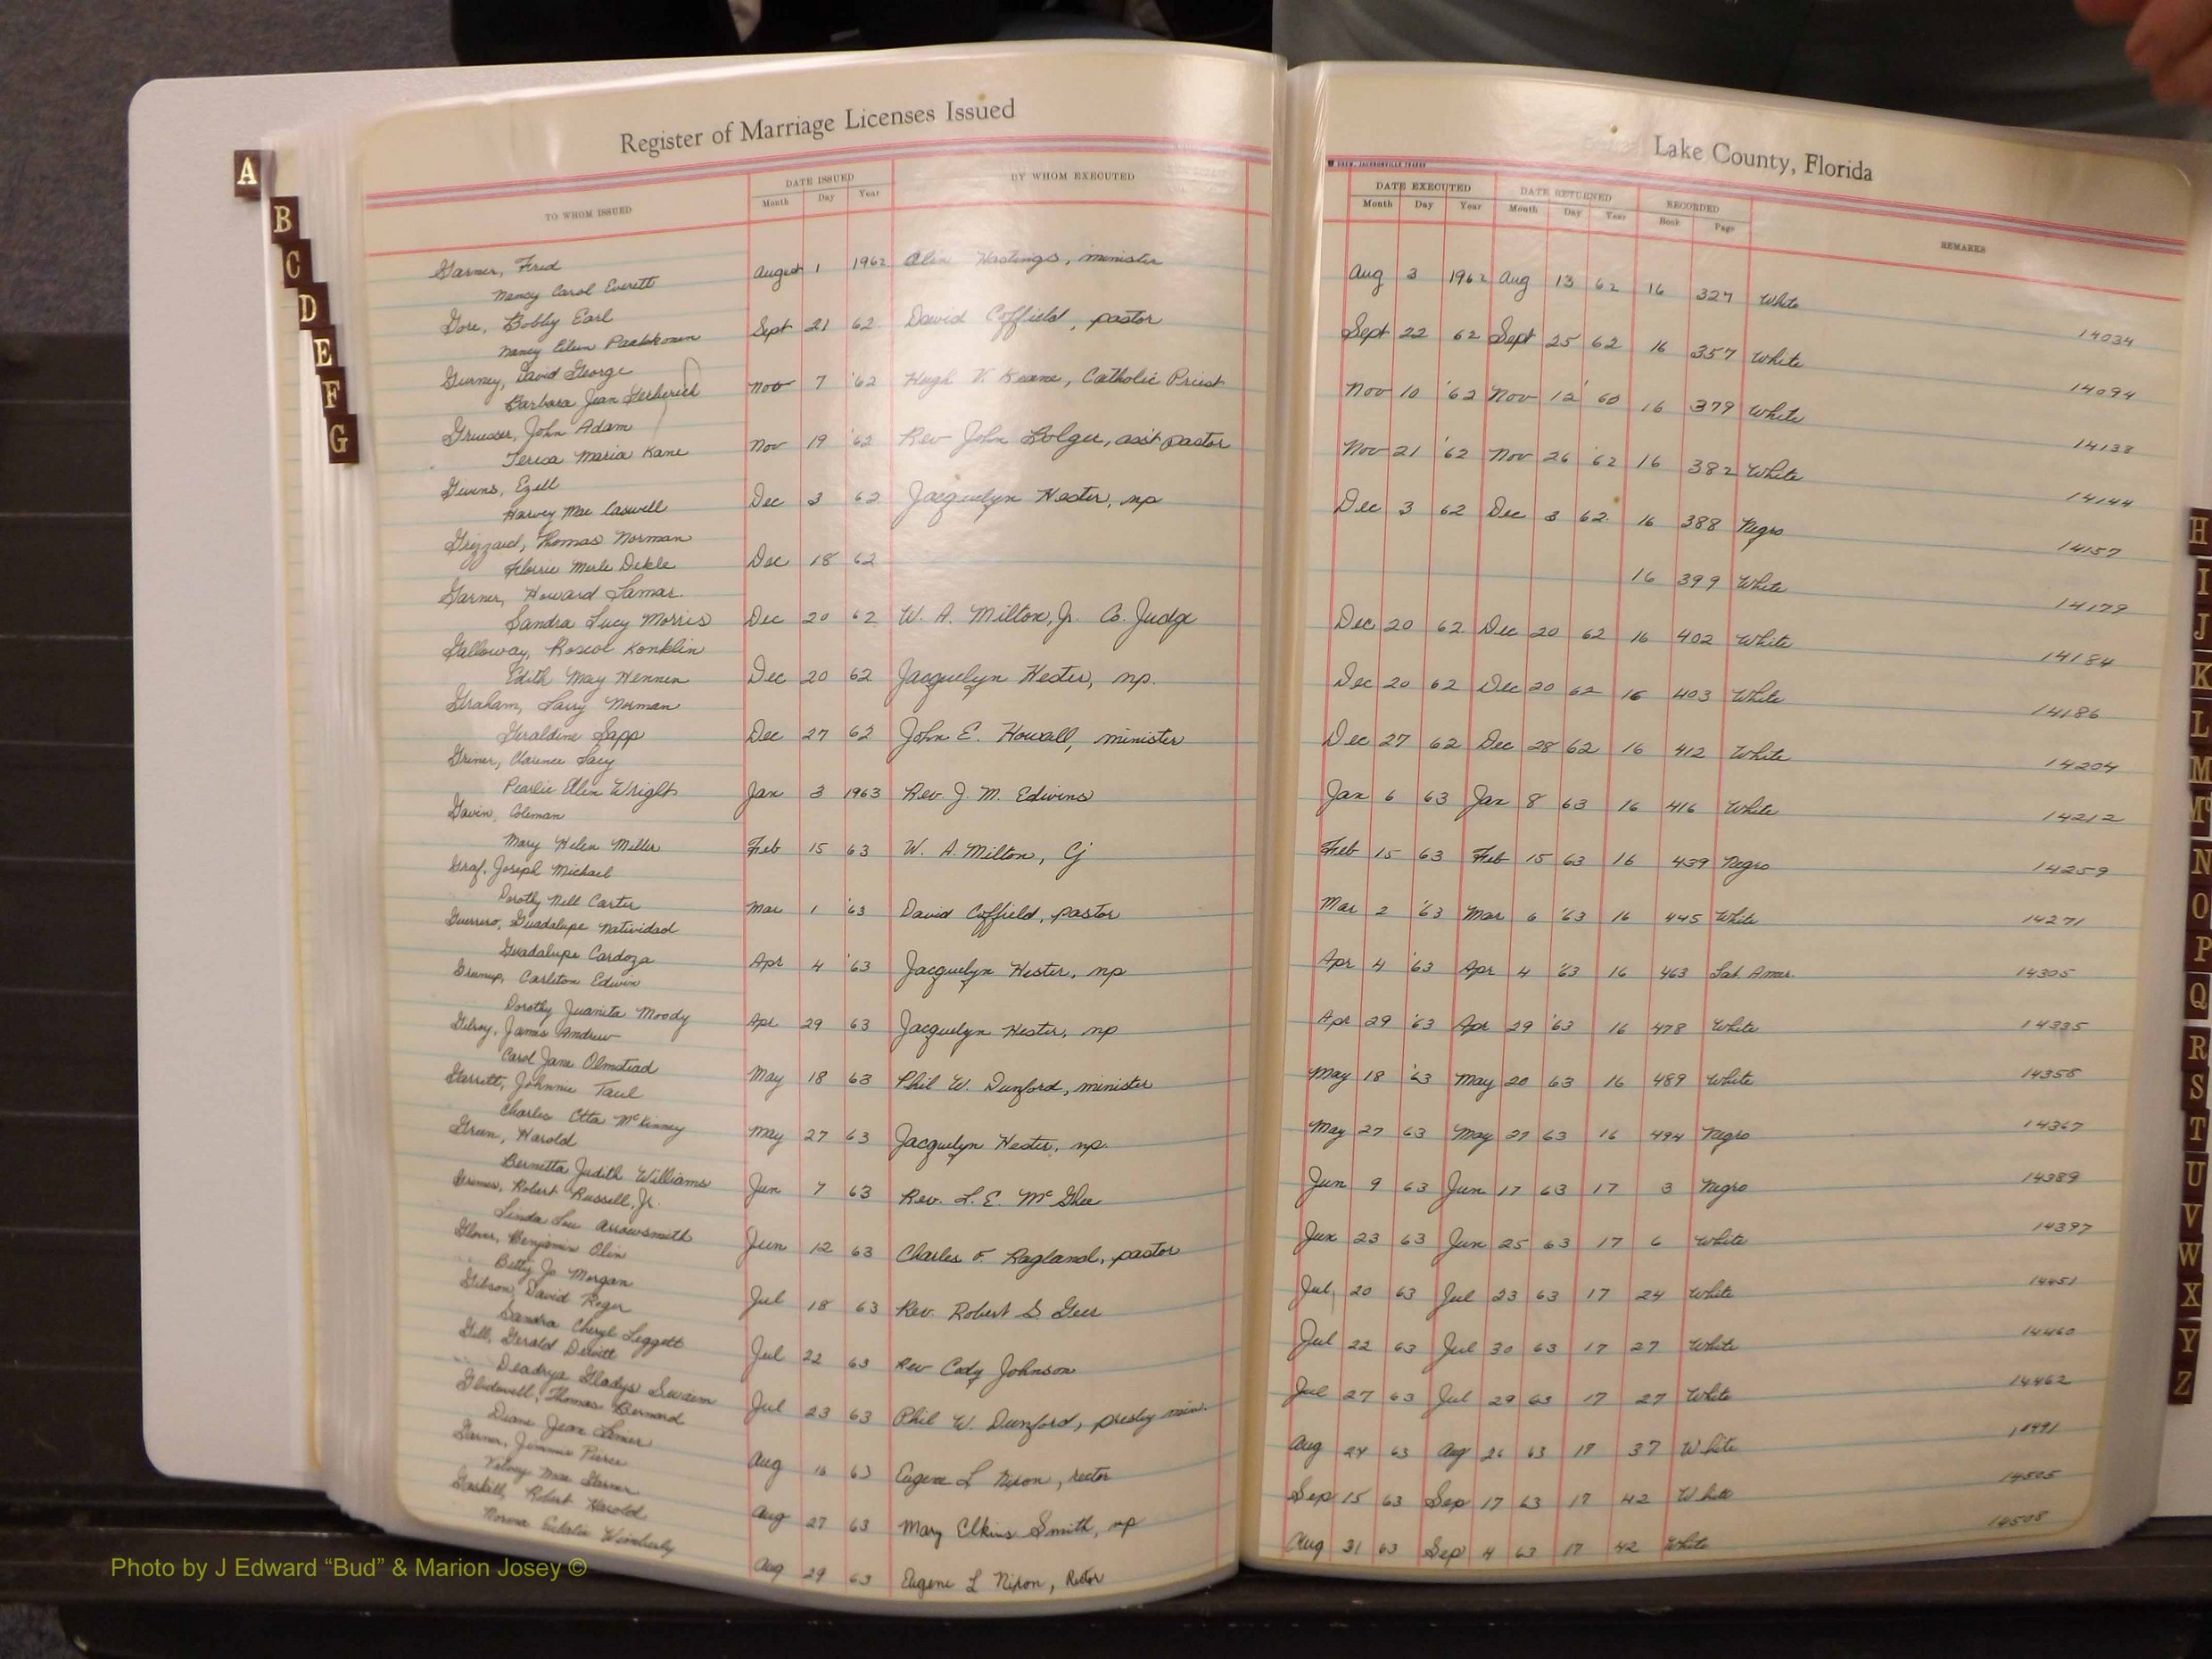 Register of Marriage Licenses Issued
Lake County, Florida
A
B
C
D
E
F
G
H
I
J
K
L
M
Mc
N
O
P
Q
R
S
T
U
V
W
X
Y
Z
TO WHOM ISSUED
DATE ISSUED
Month Day Year
BY WHOM EXECUTED
DATE EXECUTED
Month Day Year
DATE RETURNED
Month Day Year
RECORDED
Book Page
REMARKS
Garner, Fred
Nancy Carol Everett
August 1 1962 Olin Hastings, minister Aug 3 1962 Aug 13 62 16 327 White 14034
Gore, Bobby Earl
Nancy Eileen Paakkonen
Sept 21 62 David Coffield, pastor Sept 22 62 Sept 25 62 16 357 White 14094
Gurney, David George
Barbara Jean
Nov 7 '62 Hugh V. Keane, Catholic Priest Nov 10 '62 Nov 12 16 379 White 14138
Gruesser, John Adam
Teresa Maria Kane
Nov 19 '62 Rev John Bolger, ass't pastor Nov 21 '62 Nov 26 '62 16 382 White 14144
Givens, Ezell
Harvey Mae Caswell
Dec 3 62 Jacquelyn Hester, np Dec 3 62 Dec 3 62 16 388 Negro 14157
Grizzard, Thomas Norman
Florrie Merle Dekle
Dec 18 62 16 399 White 14179
Garner, Howard Lamar
Sandra Lucy Morris
Dec 20 62 W. A. Milton, Jr. Co. Judge Dec 20 62 Dec 20 62 16 402 White 14184
Galloway, Roscoe Konklin
Edith May Hennen
Dec 20 62 Jacquelyn Hester, np. Dec 20 62 Dec 20 62 16 403 White 14186
Graham, Larry Norman
Geraldine Sapp
Dec 27 62 John E. Howell, minister Dec 27 62 Dec 28 62 16 412 White 14204
Griner, Clarence Lacy
Pearlie Ellen Wright
Jan 3 1963 Rev. J. M. Edwins Jan 6 63 Jan 8 63 16 416 White 14212
Gavin, Coleman
Mary Helen Miller
Feb 15 63 W. A. Milton, Cj Feb 15 63 Feb 15 63 16 439 Negro 14259
Graf, Joseph Michael
Dorothy Nell Carter
Mar 1 '63 David Coffield, pastor Mar 2 '63 Mar 6 '63 16 445 White 14271
Guerrero, Guadalupe Natividad
Guadalupe Cardoza
Apr 4 '63 Jacquelyn Hester, np Apr 4 '63 Apr 4 '63 16 463 Lat. Amer. 14305
Grumup, Carleton Edwin
Dorothy Juanita Moody
Apr 29 63 Jacquelyn Hester, np Apr 29 '63 Apr 29 '63 16 478 White 14335
Gilroy, James Andrew
Carol Jane Olmstead
May 18 63 Phil W. Dunford, minister May 18 '63 May 20 63 16 489 White 14358
Garrett, Johnnie Paul
Charles Etta McKinney
May 27 63 Jacquelyn Hester, np. May 27 63 May 27 63 16 494 Negro 14367
Green, Harold
Bernetta Judith Williams
Jun 7 63 Rev. L. E. McGhee Jun 9 63 Jun 17 63 17 3 Negro 14389
Grimes, Robert Russell, Jr.
Linda Lou Arrowsmith
Jun 12 63 Charles F. Ragland, pastor Jun 23 63 Jun 25 63 17 6 White 14397
Glover, Benjamin Olin
Betty Jo Morgan
Jul 18 63 Rev. Robert S. Geer Jul 20 63 Jul 23 63 17 24 White 14451
Gibson, David Roger
Sandra Cheryl Leggett
Jul 22 63 Rev Cody Johnson Jul 22 63 Jul 30 63 17 27 White 14460
Gill, Gerald Dewitt
Deadrya Gladys Swaim
Jul 23 63 Phil W. Dunford, presby min. Jul 27 63 Jul 29 63 17 27 White 14462
Glidewell, Thomas Bernard
Diane Jean
Aug 16 63 Eugene L Nixon, rector Aug 24 63 Aug 26 63 17 37 White 14491
Garner, Jimmie Pierce
Mae Garner
Aug 27 63 Mary Elkins Smith, np Sep 15 63 Sep 17 63 17 42 White 14505
Gaskill, Robert Harold
Norma Eulalia Wimberly
Aug 29 63 Eugene L Nixon, Rector Aug 31 63 Sep 4 63 17 42 White 14508
Photo by J Edward “Bud” & Marion Josey ©